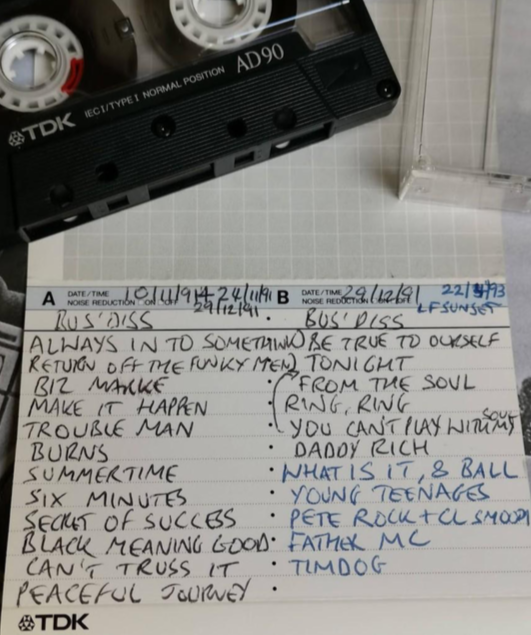 AD90
IEC I/TYPE I NORMAL POSITION
TDK
A DATE/TIME 10/4/914 24/11/91 B DATE/TIME 29/12/91 22/4/93
NOISE REDUCTION ON 29/12/91 NOISE REDUCTION LF SUNSET
BUS'DISS · BUS' DISS
ALWAYS IN TO SOMETHING) BE TRUE TO OURSELF
RETURN OFF THE FUNKY MEN) TONIGHT
BIZ MARKE · FROM THE SOUL
MAKE IT HAPPEN · RING, RING
TROUBLE MAN · YOU CAN'T PLAY WITH MY SOUL
BURNS · DADDY RICH
SUMMERTIME · WHAT IS IT, 8 BALL
SIX MINUTES · YOUNG TEENAGES
SECRET OF SUCCESS · PETE ROCK + CL SMOOTH
BLACK MEANING GOOD · FATHER MC
CAN'T TRUSS IT · TIMDOG
PEACEFUL JOURNEY ·
TDK